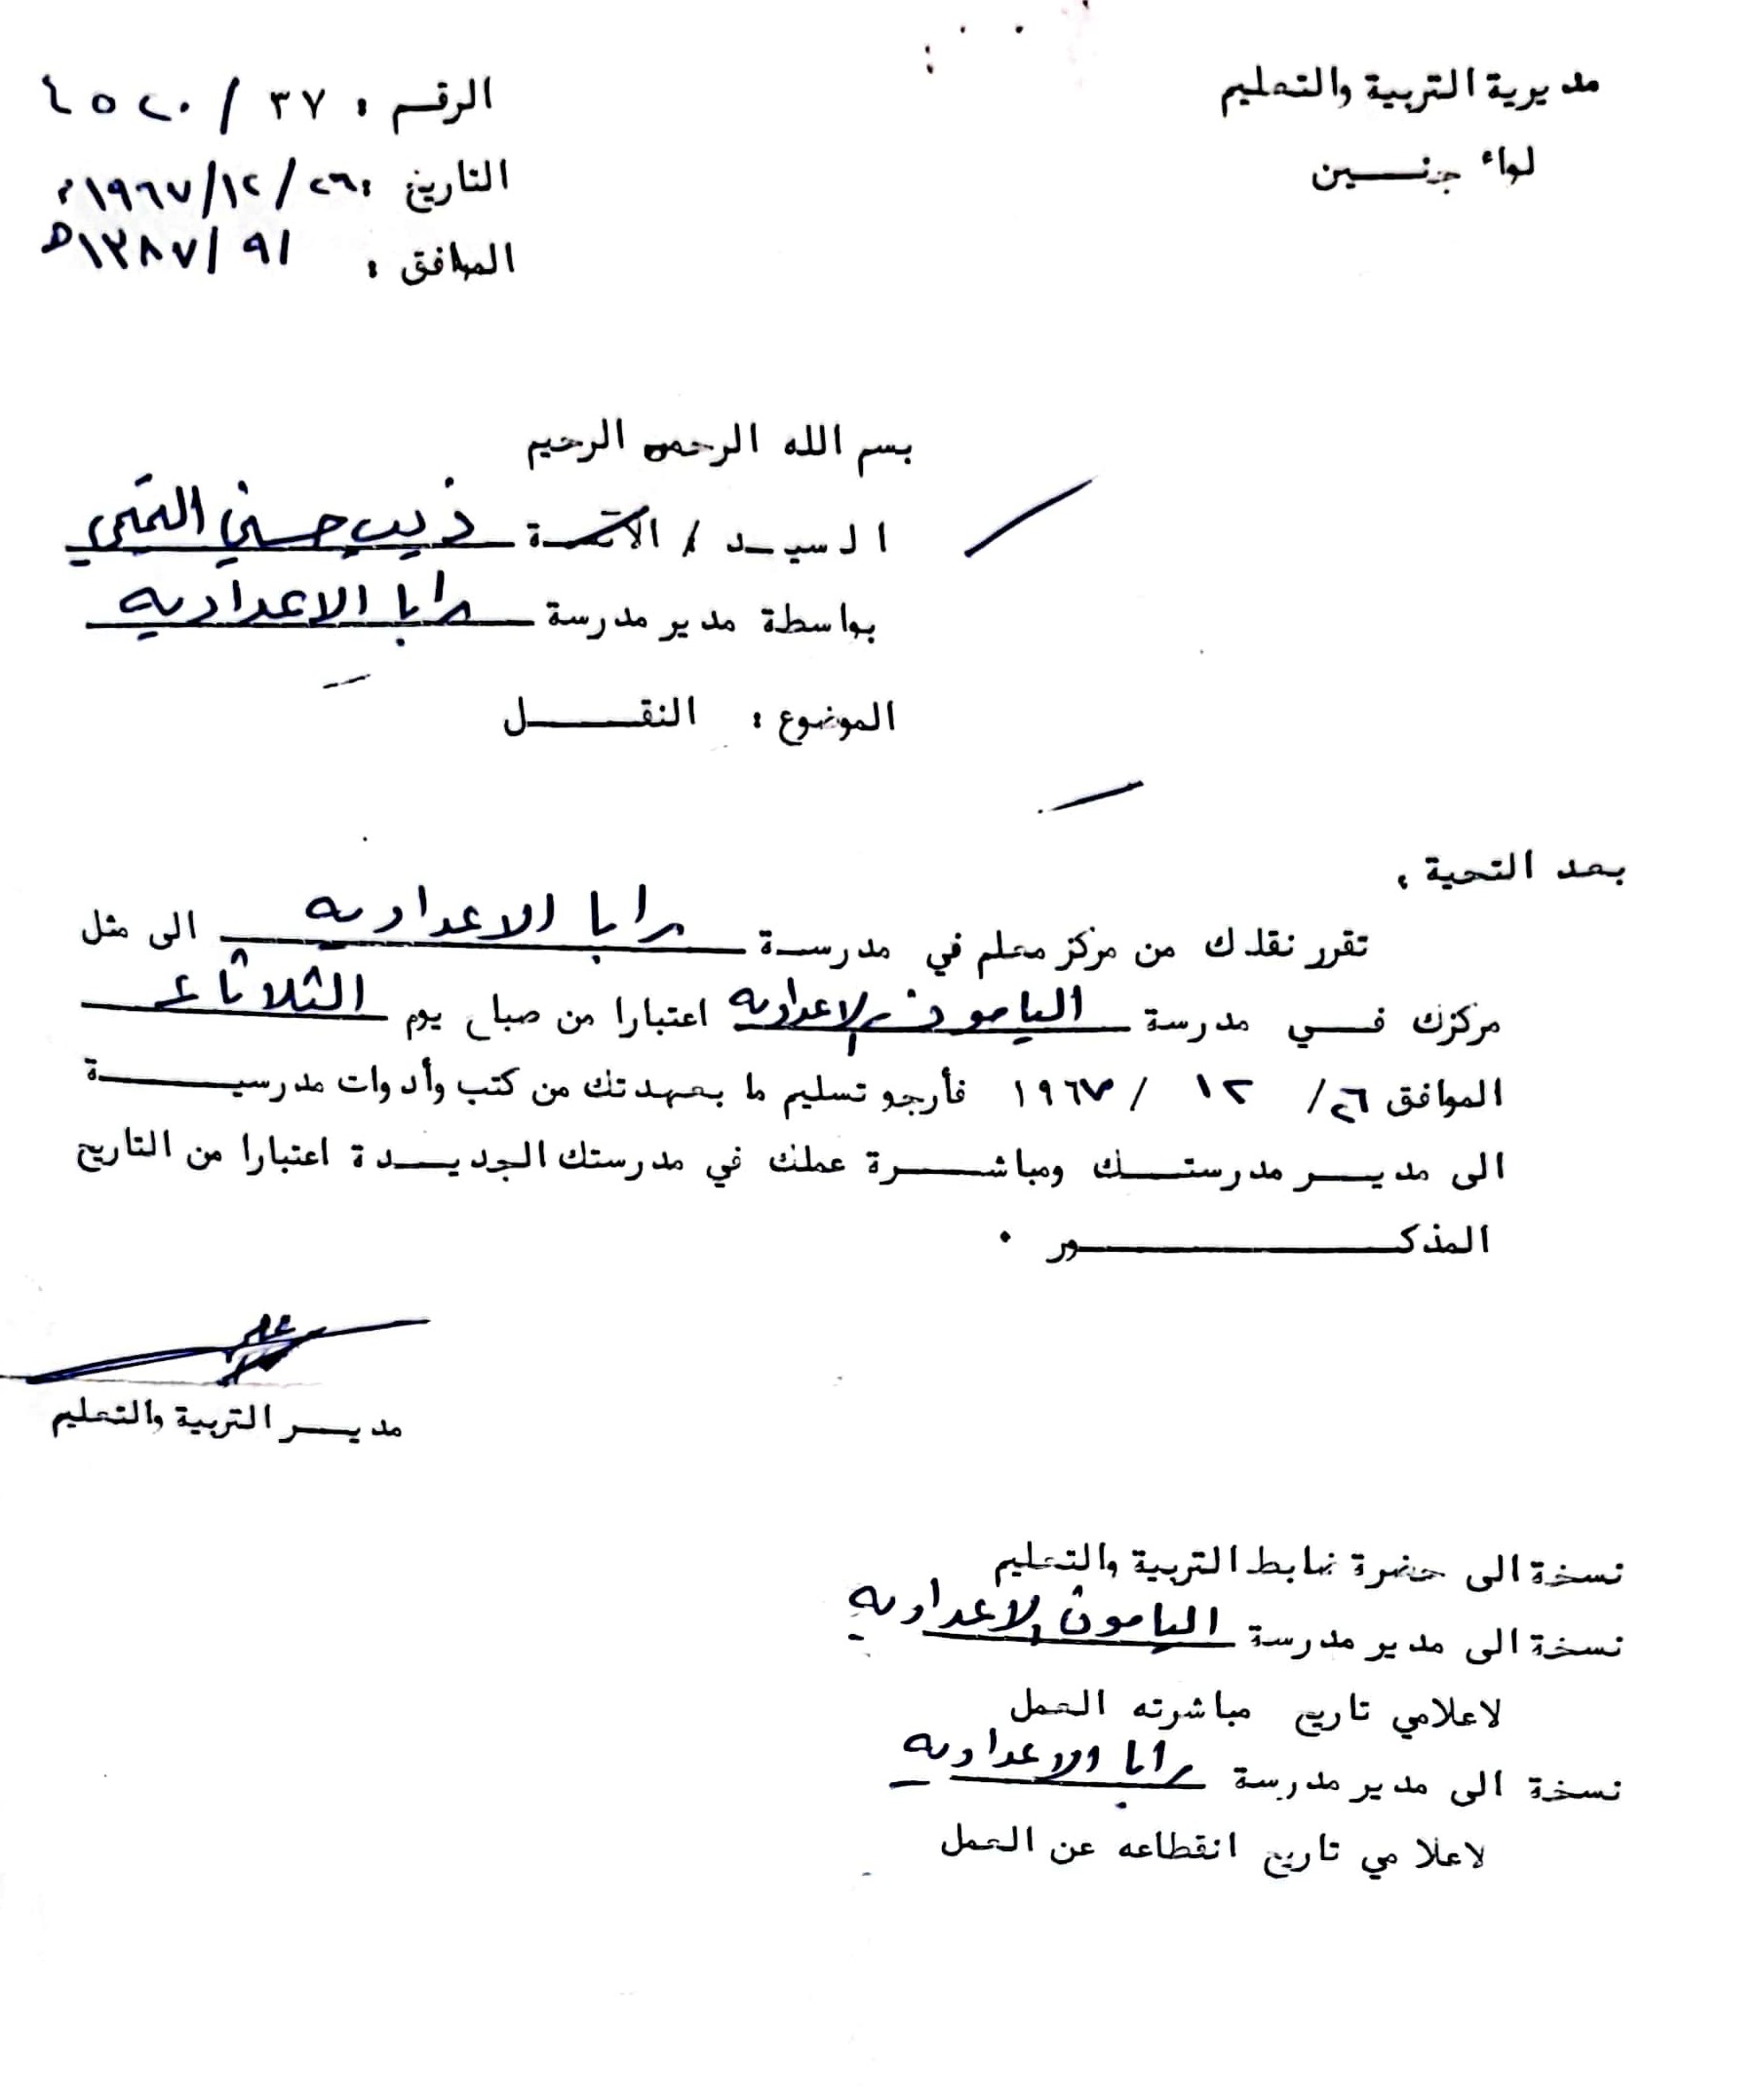 مديرية التربية والتعليم
لواء جنسين
الرقم : ٣٧ / ٤٥٢٠
التاريخ : ٢٦ / ١٢ / ١٩٦٧م
الموافق : / ٩ / ١٣٨٧ه
بسم الله الرحمن الرحيم
السيد / الآنسة ذيب حسني التميمي
بواسطة مدير مدرسة برابا الاعداديه
الموضوع : النقل
بعد التحية ،
تقرر نقلك من مركز معلم في مدرسة برابا الاعداديه الى مثل
مركزك في مدرسة اليامون الاعداديه اعتبارا من صباح يوم الثلاثاء
الموافق ٢٦ / ١٢ / ١٩٦٧ فأرجو تسليم ما بعهدتك من كتب وأدوات مدرسية
الى مدير مدرستك ومباشرة عملك في مدرستك الجديدة اعتبارا من التاريخ
المذكور .
مدير التربية والتعليم
نسخة الى حضرة ضابط التربية والتعليم
نسخة الى مدير مدرسة اليامون الاعداديه
لاعلامي تاريخ مباشرته العمل
نسخة الى مدير مدرسة برابا الاعداديه
لاعلامي تاريخ انقطاعه عن العمل